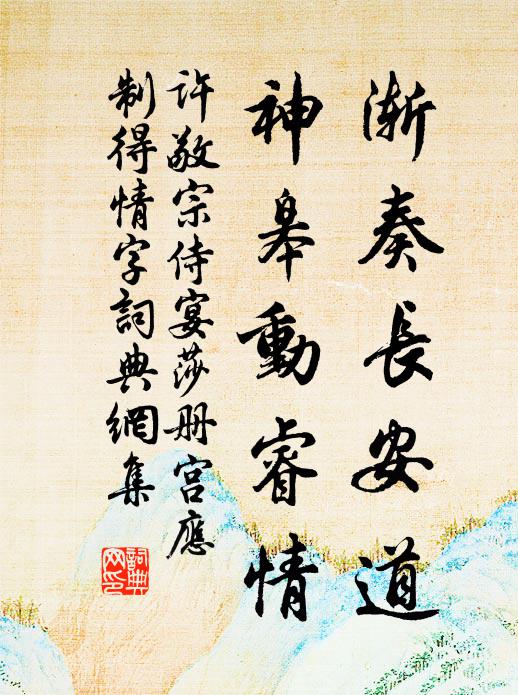 漸奏長安道
神皋動睿情
許敬宗侍宴莎册宮應
制得情字詞典網集
詞典
网印